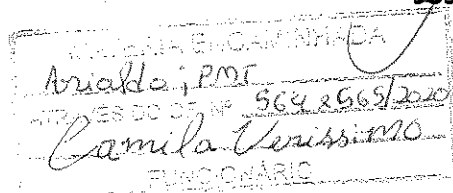 CÓPIA ENCAMINHADA
Arialdo; PMT
ATRAVÉS DO OF. Nº 564 e 565/2020
Camila Verissimo
FUNCIONÁRIO